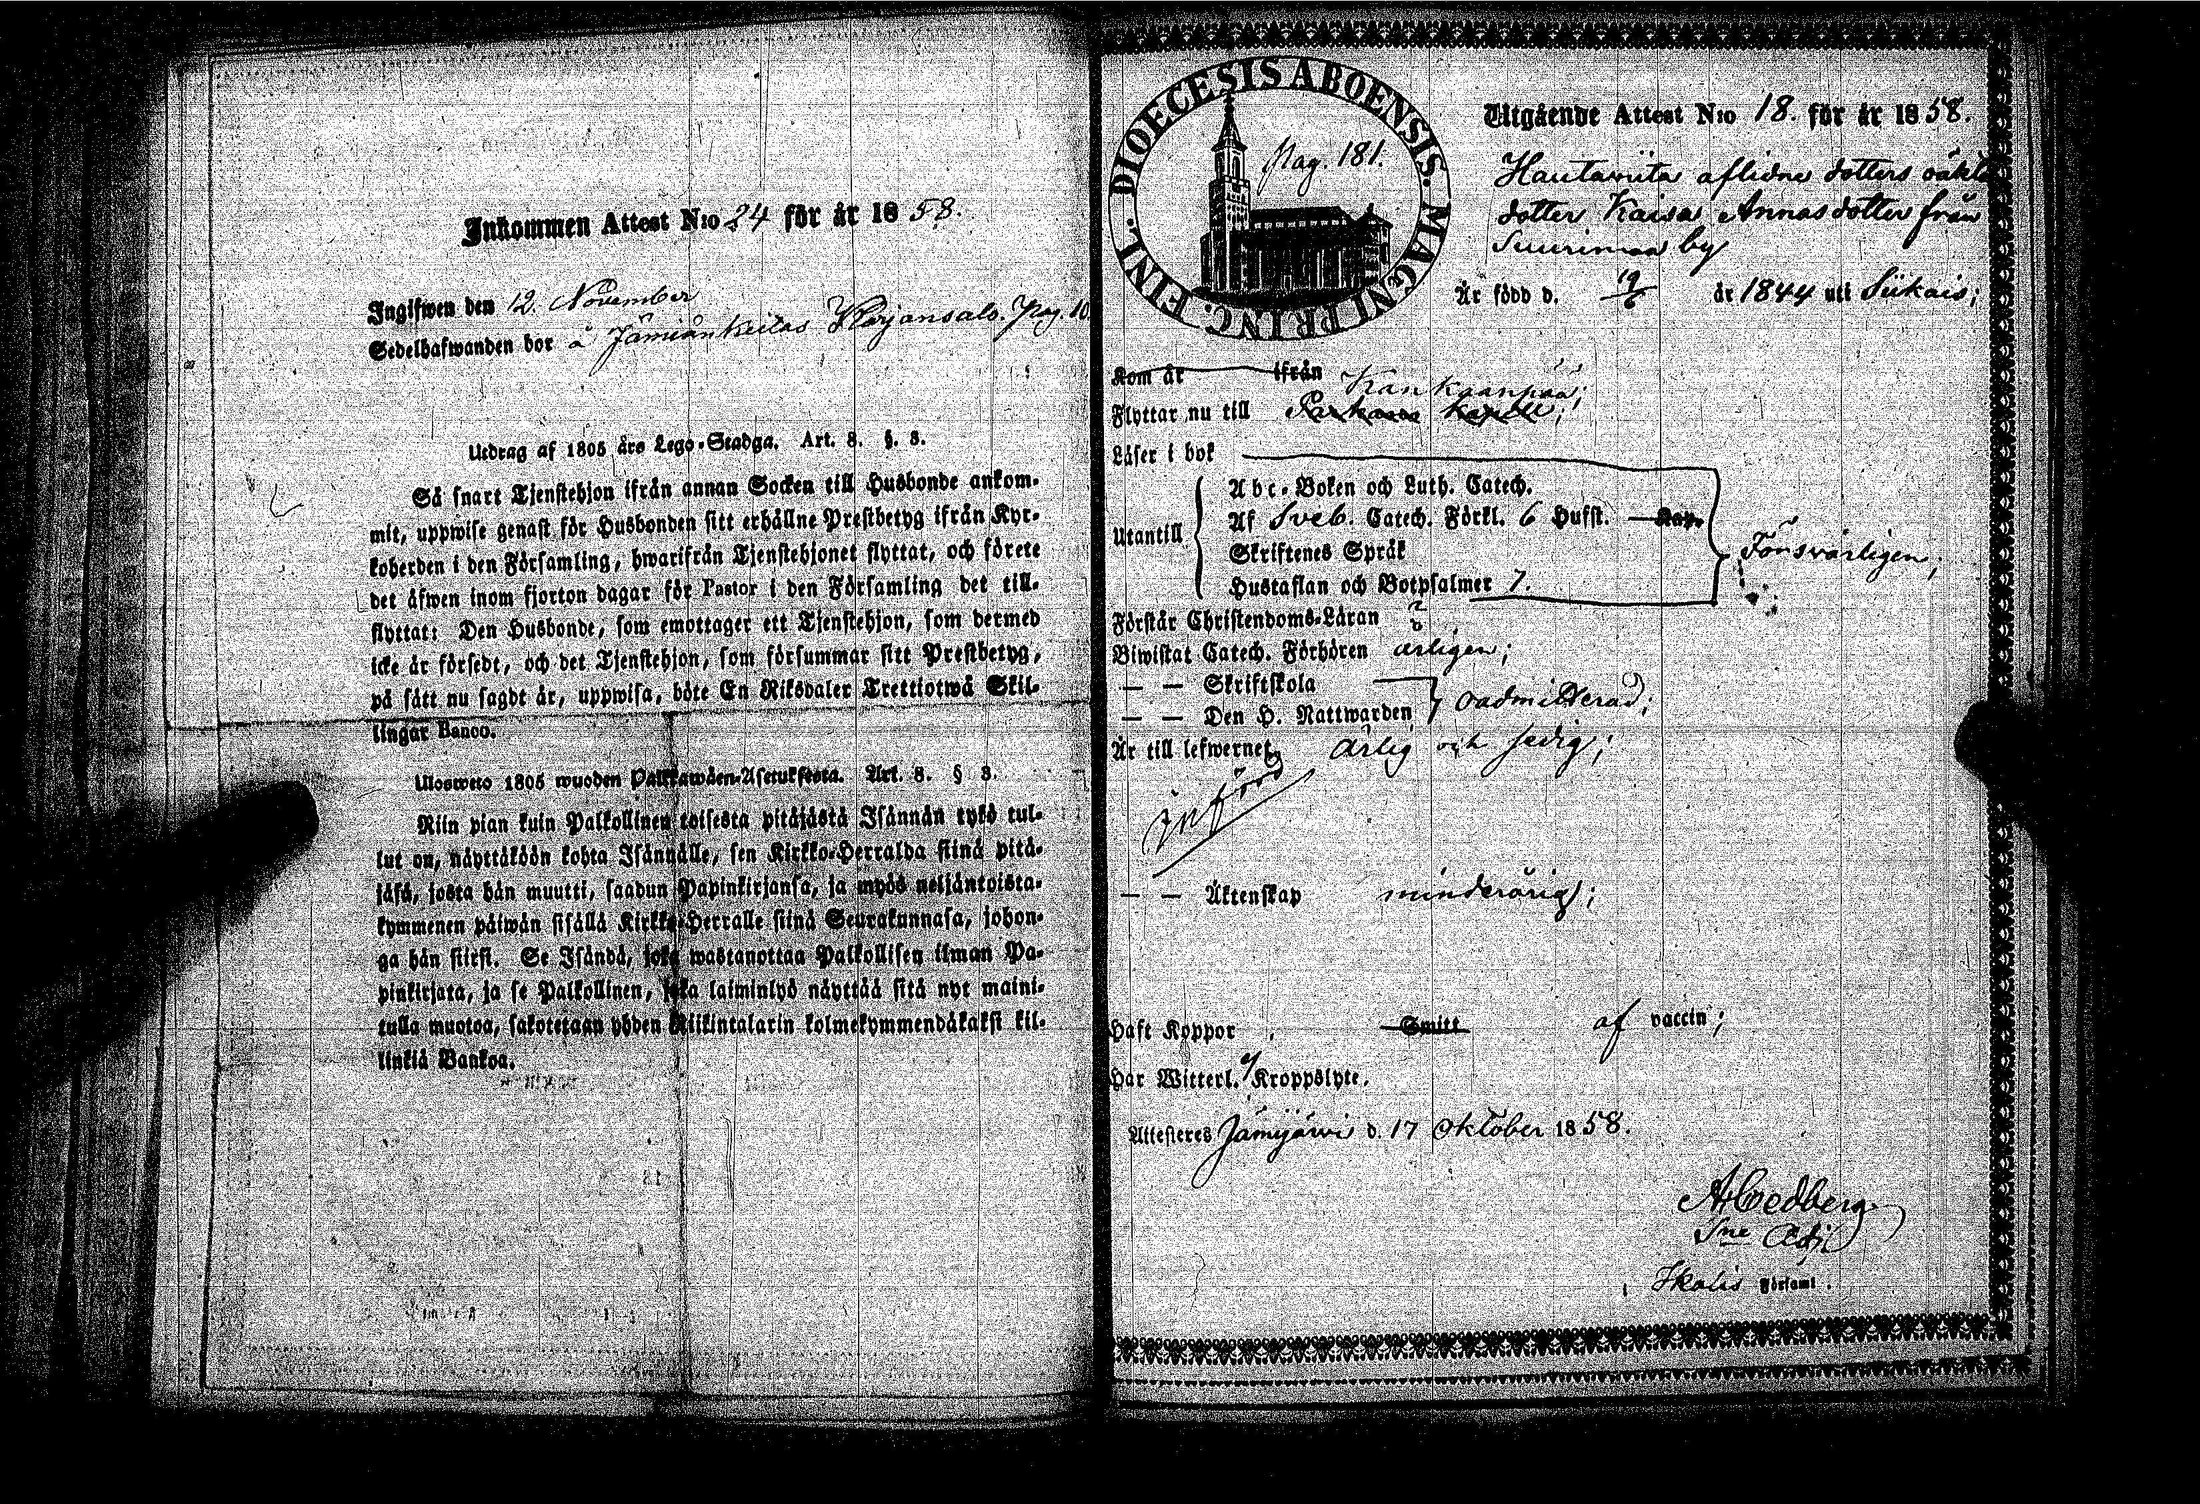 Inkommen Attest N:o 24 för år 1858.
Ingifwen den 12. November
Sedelhafwanden bor å Jämiänkeitas Karjansalo. Pag. 10
Utdrag af 1805 års Lego-Stadga. Art. 8. §. 3.
Så snart Tjenstehjon ifrån annan Socken till Husbonde ankom-
mit, uppwise genast för Husbonden sitt erhållne Prestbetyg ifrån Kyr-
koherden i den Församling, hwarifrån Tjenstehjonet flyttat, och förete
det äfwen inom fjorton dagar för Pastor i den Församling det till-
flyttat: Den Husbonde, som emottager ett Tjenstehjon, som dermed
icke är försedt, och det Tjenstehjon, som försummar sitt Prestbetyg,
på sätt nu sagdt är, uppwisa, böte En Riksdaler Trettiotwå Skil-
lingar Banco.
Ulosweto 1805 wuoden Palkkawäen-Asetuksesta. Art. 8. § 3.
Niin pian kuin Palkollinen toisesta pitäjästä Isännän tykö tul-
lut on, näyttäköön kohta Isännälle, sen Kirkko-Herralda siinä pitä-
jäsä, josta hän muutti, saadun Papinkirjansa, ja myös neljäntoista-
kymmenen päiwän sisällä Kirkko-Herralle siinä Seurakunnasa, johon-
ga hän siirsi. Se Isändä, joka wastanottaa Palkollisen ilman Pa-
pinkirjata, ja se Palkollinen, joka laiminlyö näyttää sitä nyt maini-
tulla muotoa, sakotetaan yhden Riikintalarin kolmekymmendäkaksi kil-
linkiä Bankoa.
DIOECESIS ABOENSIS. MAGNI PRINC. FINL.
Pag. 181.
Utgående Attest N:o 18. för år 1858.
Hautaniita aflidne dotters oäkta
dotter Kaisa Annasdotter från
Suurimaa by
Är född d. 19/6 år 1844 uti Siikais;
Kom år ifrån
Kankaanpää;
Flyttar nu till Parkano Kapell;
Läser i bok
Utantill
Abc-Boken och Luth. Catech.
Af Sveb. Catech. Förkl. 6 Hufst. Kap.
Skriftenes Språk
Hustaflan och Botpsalmer 7.
Försvarligen;
Förstår Christendoms-Läran
Biwistat Catech. Förhören årligen;
— — Skriftskola
— — Den H. Nattwarden
oadmitterad;
Är till lefwernet ärlig och sedig;
införd
— — Äktenskap minderårig;
Haft Koppor Smitt af vaccin;
Har Witterl. ej Kroppslyte.
Attesteres Jämijärwi d. 17 Oktober 1858.
A Cedberg
Sne Adj
i Ikalis Församl.